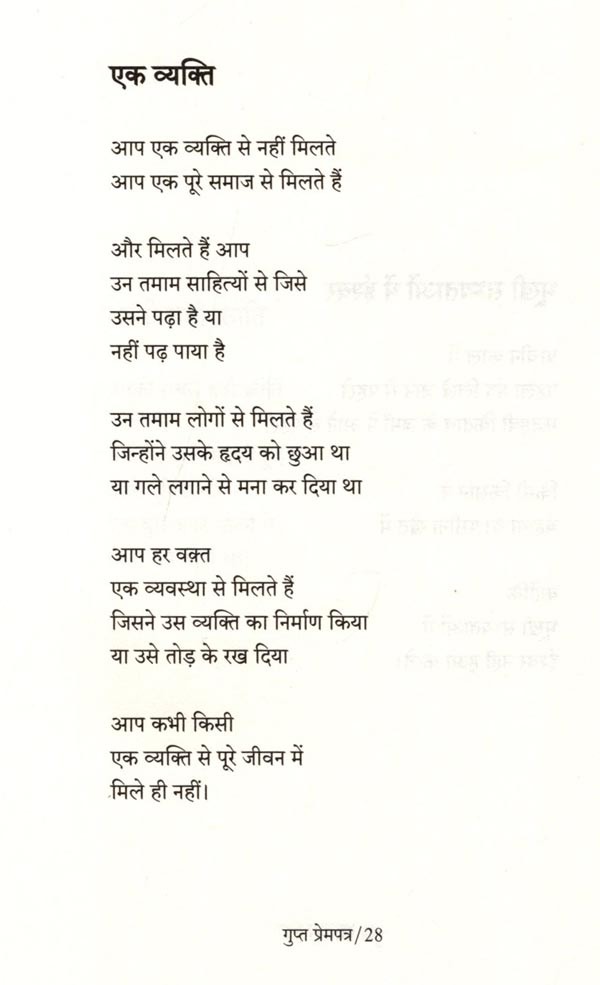 एक व्यक्ति
आप एक व्यक्ति से नहीं मिलते
आप एक पूरे समाज से मिलते हैं
और मिलते हैं आप
उन तमाम साहित्यों से जिसे
उसने पढ़ा है या
नहीं पढ़ पाया है
उन तमाम लोगों से मिलते हैं
जिन्होंने उसके हृदय को छुआ था
या गले लगाने से मना कर दिया था
आप हर वक़्त
एक व्यवस्था से मिलते हैं
जिसने उस व्यक्ति का निर्माण किया
या उसे तोड़ के रख दिया
आप कभी किसी
एक व्यक्ति से पूरे जीवन में
मिले ही नहीं।
गुप्त प्रेमपत्र/28